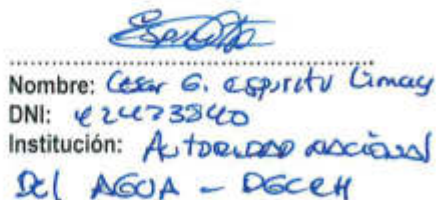 Nombre: Cesar G. Espiritu Limay
DNI: 42473340
Institución: Autoridad Nacional
Del AGUA - DGCRH